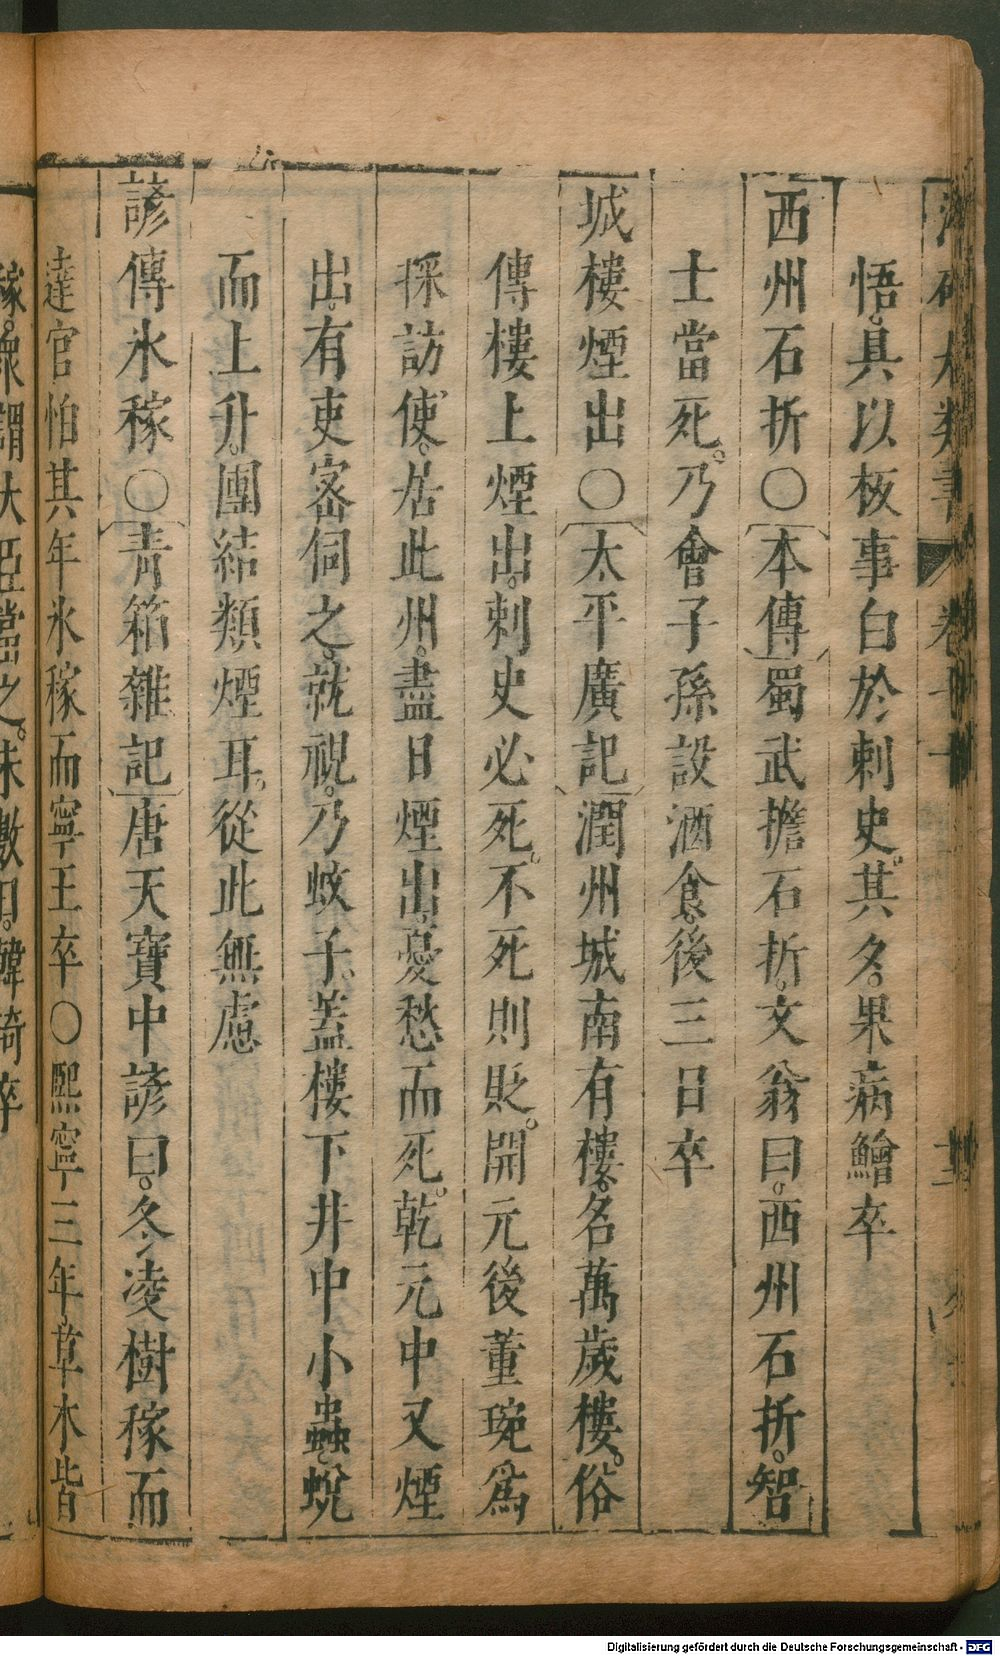 悟。具以板事白於刺史。其夕。果病鱠卒
西州石折〇〔本傳〕蜀武擔石折。文翁曰。西州石折。智
士當死。乃會子孫設酒食。後三日卒
城樓煙出〇〔太平廣記〕潤州城南有樓。名萬歲樓。俗
傳樓上煙出。刺史必死。不死則貶。開元後董琬爲
採訪使。居此州。盡日煙出。憂愁而死。乾元中又煙
出。有吏密伺之。就視。乃蚊子。蓋樓下井中小蟲。蛻
而上升。團結類煙耳。從此無慮
諺傳氷稼〇〔青箱雜記〕唐天寶中諺曰。冬凌樹稼而
達官怕其年氷稼而寧王卒〇熙寧三年。草木皆
稼。衆謂大臣當之。未數日。韓琦卒
Digitalisierung gefördert durch die Deutsche Forschungsgemeinschaft - DFG